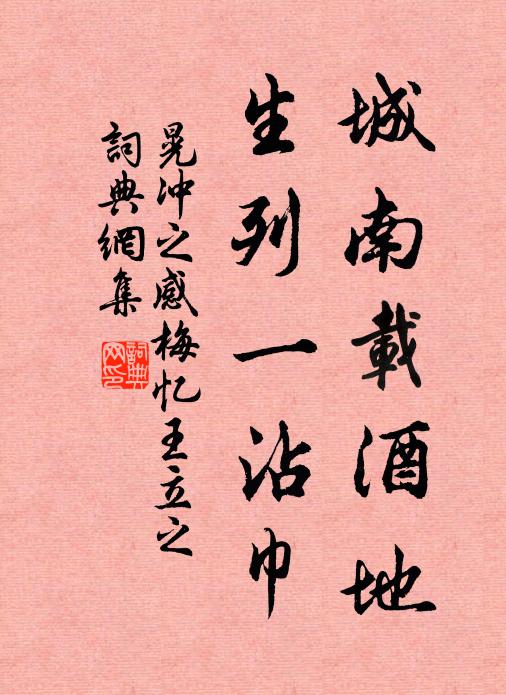 城南載酒地
生列一沾巾
晃冲之感梅忆王立之
詞典網集
詞典网印